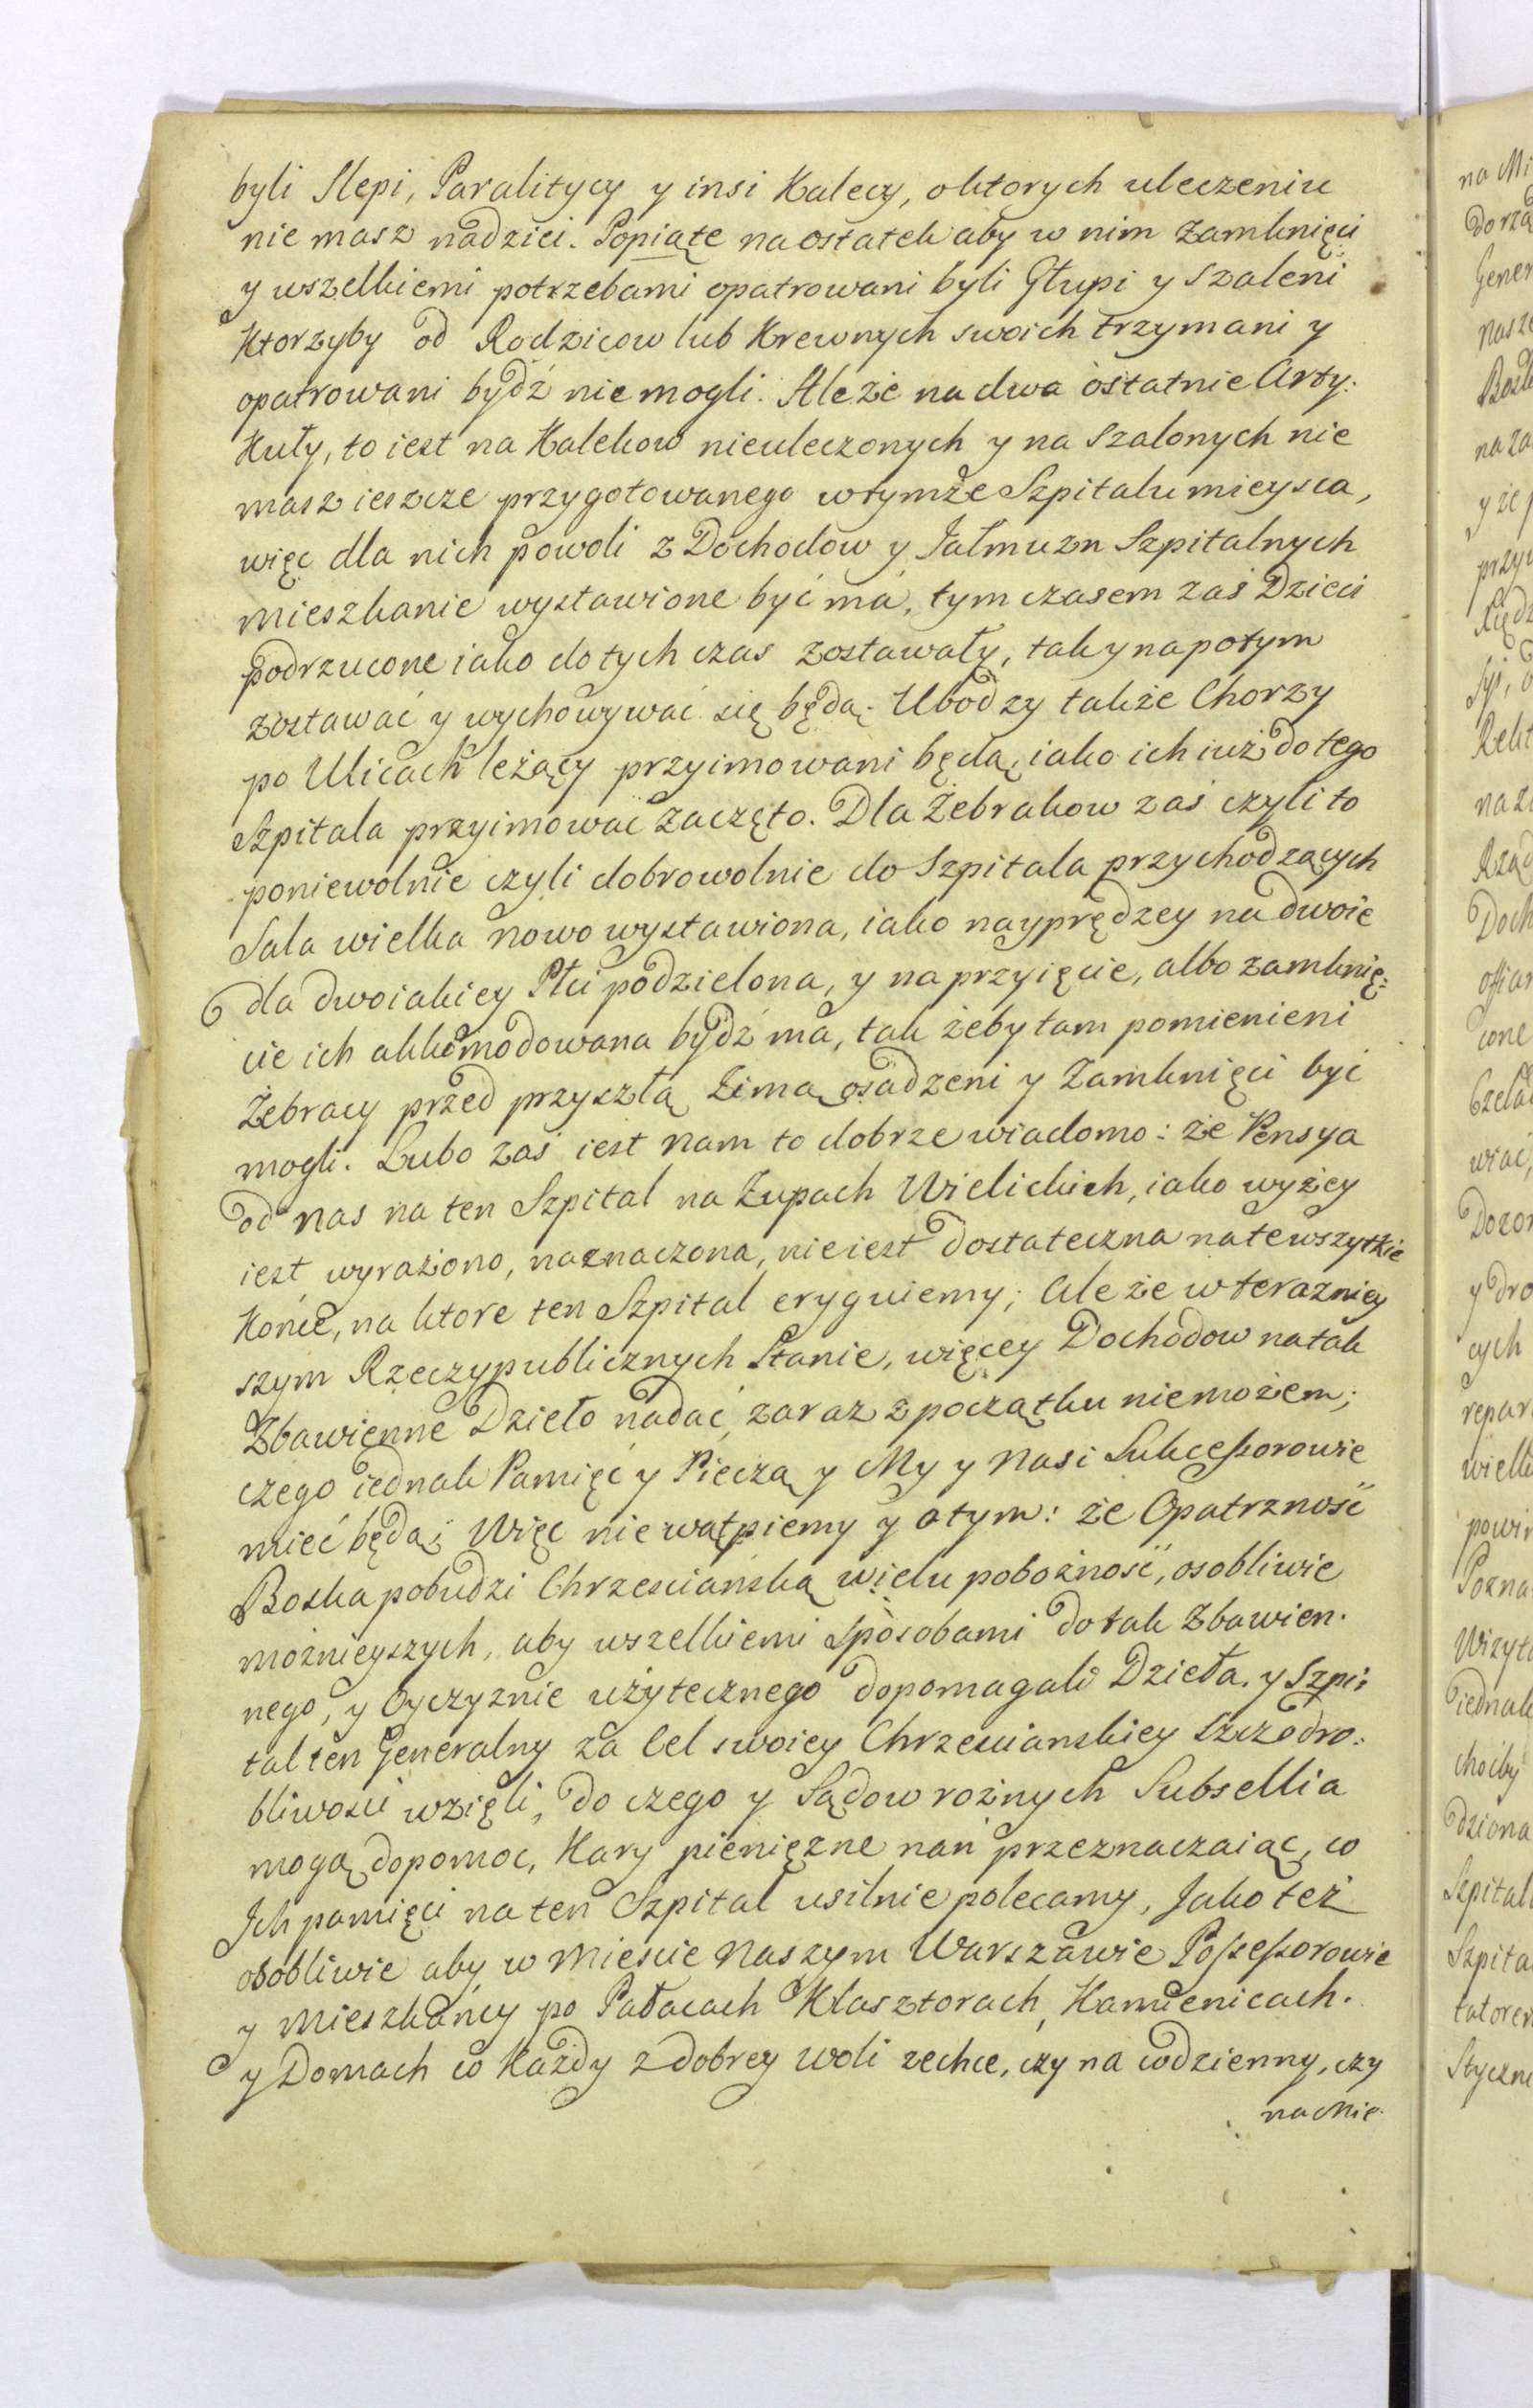 byli Slepi, Paralitycy y insi Kalecy, o ktorych uleczeniu
nie masz nadziei. Popiąte na ostatek aby w nim zamknięci
y wszelkiemi potrzebami opatrowani byli Głupi y Szaleni
Ktorzyby od Rodzicow lub Krewnych swoich trzymani y
opatrowani bydź nie mogli. Ale że na dwa ostatnie Arty.
Kuły, to iest na Kalekow nieuleczonych y na Szalonych nie
masz ieszcze przygotowanego w tymże Szpitalu mieysca,
więc dla nich powoli z Dochodow y Jałmuzn Szpitalnych
mieszkanie wystawione być má, tym czasem zaś Dzieci
podrzucone iako do tych czas zostawały, tak y na potym
zostawać y wychowywać się będą. Ubodzy także Chorzy
po Ulicach leżący przyimowani będą, iako ich iuż do tego
Szpitala przyimować zaczęto. Dla Żebrakow zaś czyli to
poniewolnie czyli dobrowolnie do Szpitala przychodzących
Sala wielka nowo wystawiona, iako nayprędzey na dwoie
dla dwoiakiey Płci podzielona, y na przyięcie, albo zamknię:
cie ich akkomodowana bydź ma, tak żeby tam pomienieni
Żebracy przed przyszłą Zimą osadzeni y Zamknięci być
mogli. Lubo zaś iest nam to dobrze wiadomo: że Pensya
od nas na ten Szpital na Żupach Wielickich, iako wyżey
iest wyrażono, naznaczona, nie iest dostateczna na te wszytkie
Końce, na ktore ten Szpital eryguiemy; Ale że w terazniey
szym Rzeczypublicznych Stanie, więcey Dochodow na tak
Zbawienne Dzieło nadać zaraz z początku niemożem;
czego iednak Pamięć y Pieczą y My y Nasi Sukcessorowie
mieć będą; Więc nie wątpiemy y o tym: że Opatrzność
Boska pobudzi Chrzesciańską wielu pobożność, osobliwie
możnieyszych, aby wszelkiemi sposobami do tak Zbawien.
nego, y Oyczyznie użytecznego dopomagali Dzieła. y Szpi:
tal ten Generalny za Cel swoiey Chrzescianskiey szczodro:
bliwości wzięli, do czego y Sądow rożnych Subsellia
mogą dopomoc, Kary pieniężne nań przeznaczaiąc, co
Ich pamięci na ten Szpital usilnie polecamy, Jako też
osobliwie aby w Miescie Naszym Warszawie Possessorowie
y Mieszkáńcy po Pałacach Klasztorach, Kamienicach.
y Domach co Każdy z dobrey woli zechce, czy na codzienny, czy
na Mie.
na Mi